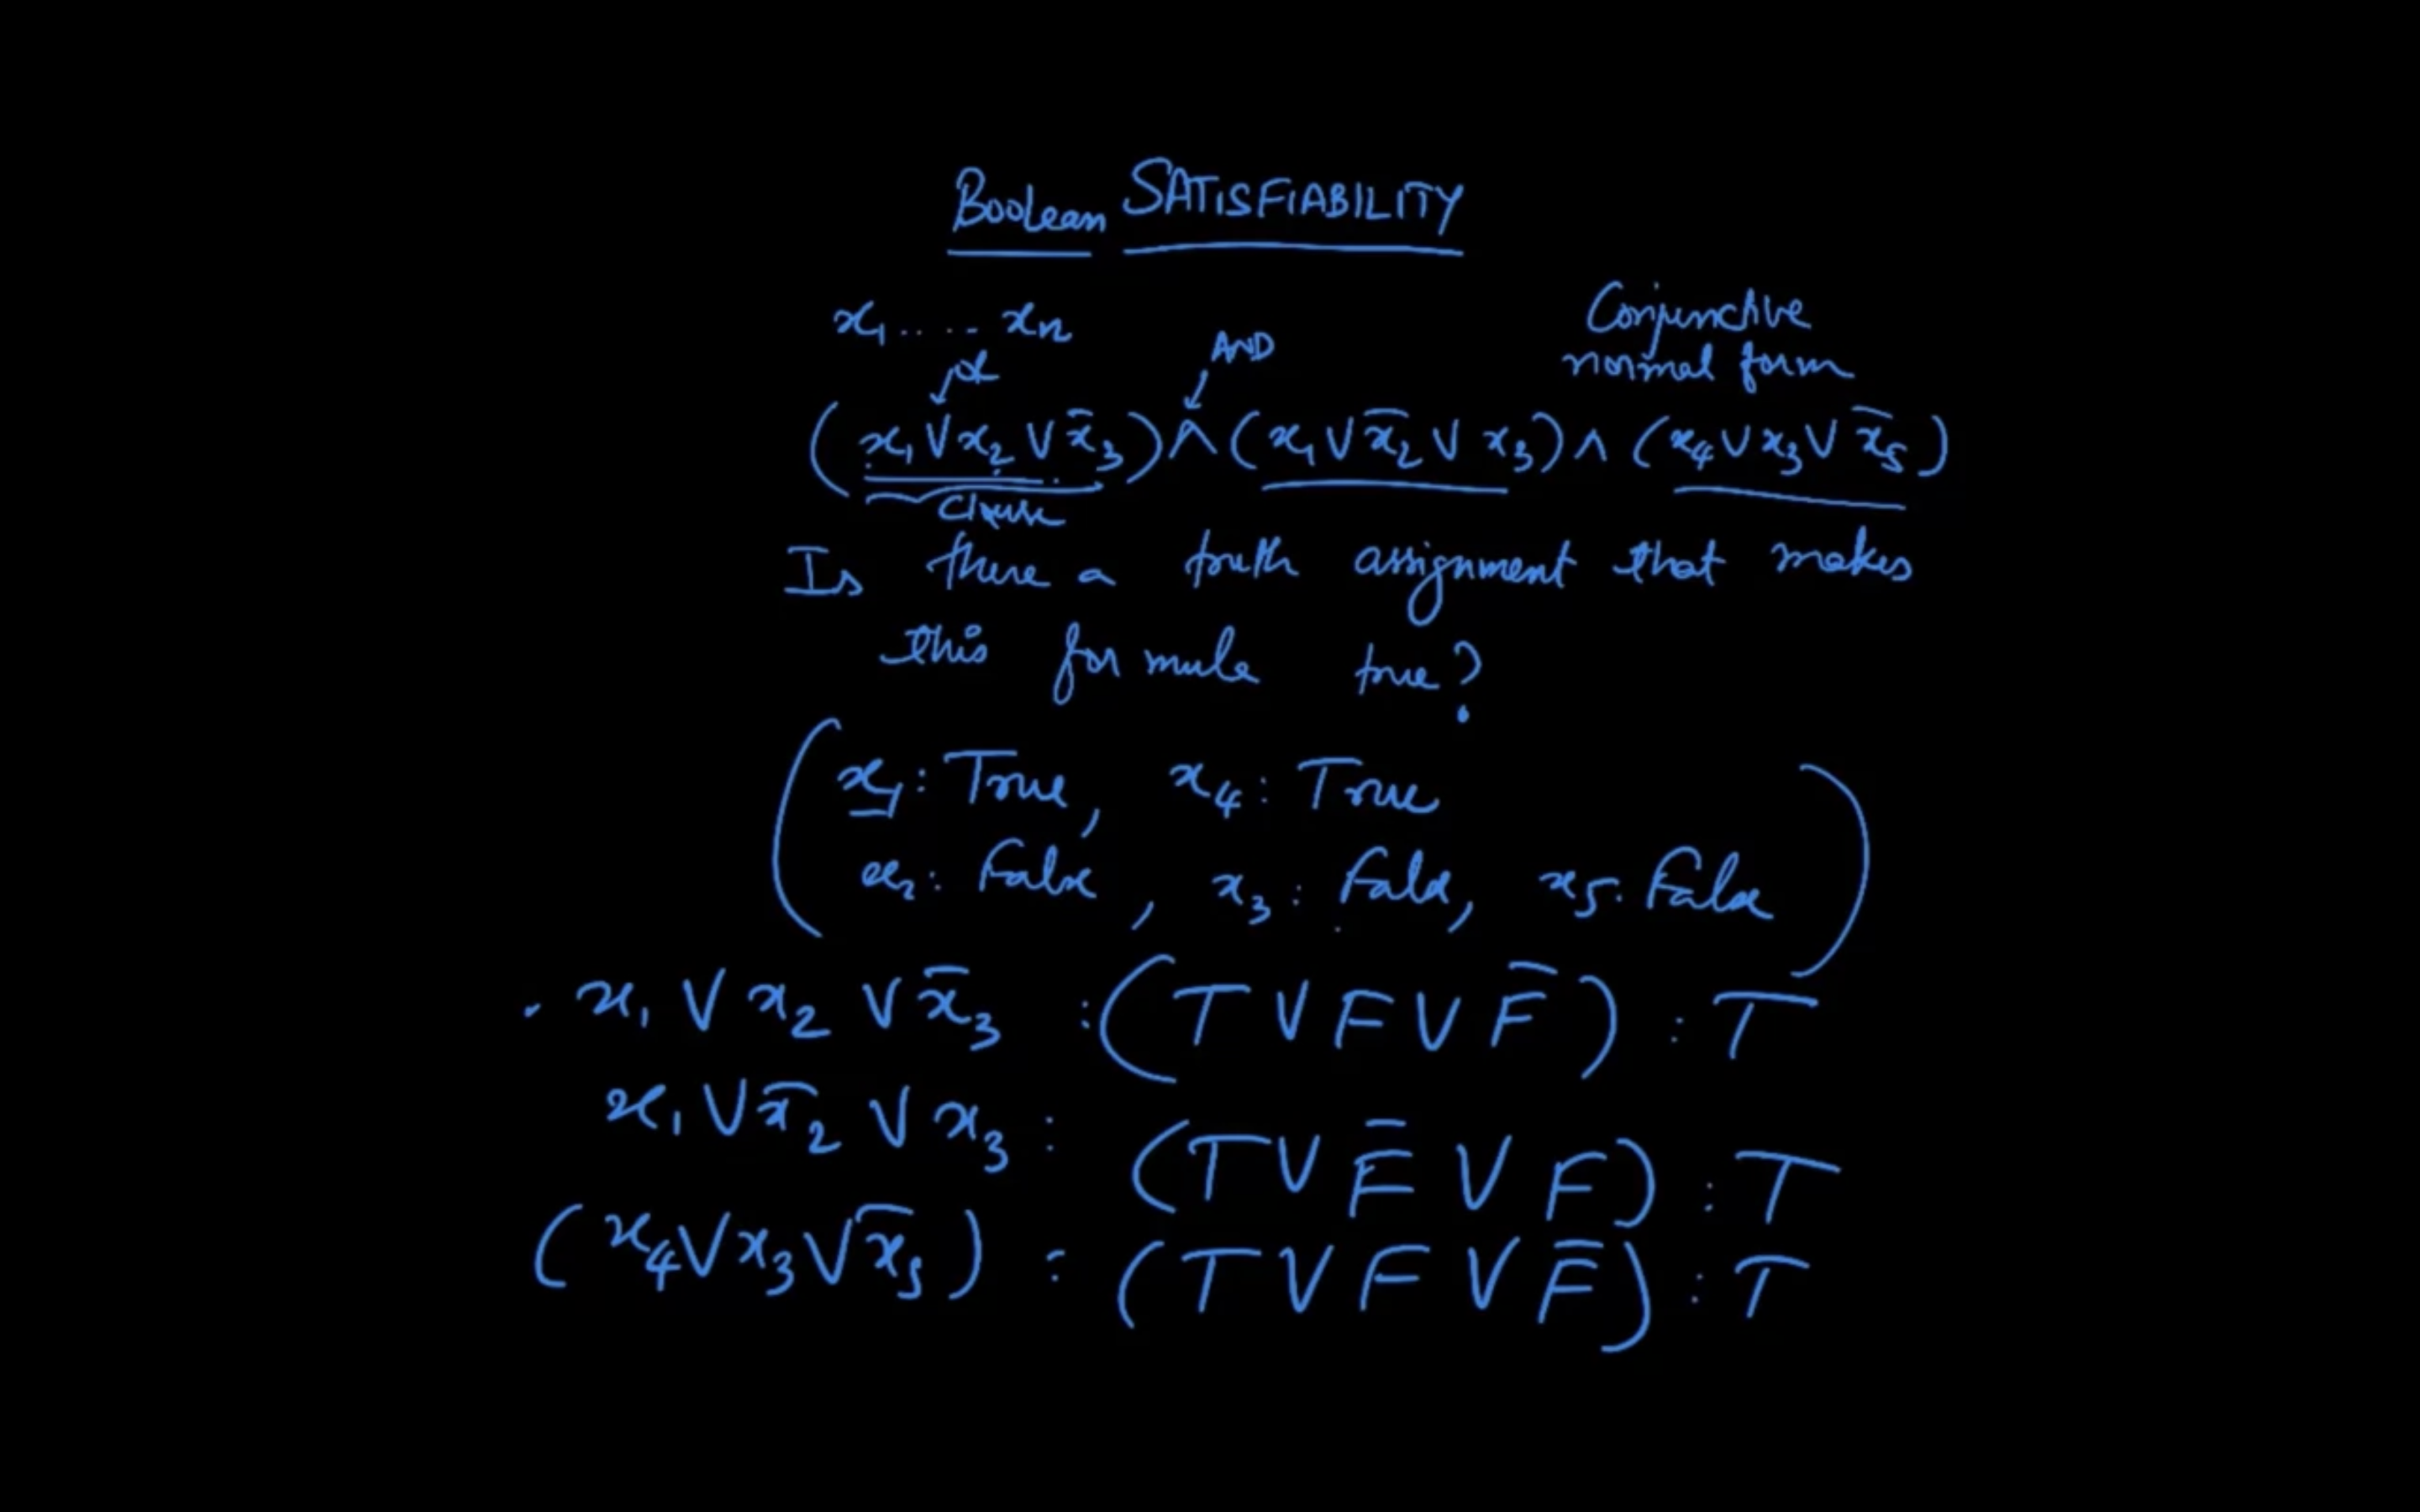 Boolean SATISFIABILITY
x₁ .... xₙ
OR
AND
Conjunctive
normal form
(x₁ ∨ x₂ ∨ x̄₃) ∧ (x₁ ∨ x̄₂ ∨ x₃) ∧ (x₄ ∨ x₃ ∨ x̄₅)
Clause
Is there a truth assignment that makes
this formula true?
(x₁: True, x₄: True
x₂: False, x₃: False, x₅: False)
x₁ ∨ x₂ ∨ x̄₃ : (T ∨ F ∨ F̄) : T
x₁ ∨ x̄₂ ∨ x₃ : (T ∨ F̄ ∨ F) : T
(x₄ ∨ x₃ ∨ x̄₅) : (T ∨ F ∨ F̄) : T